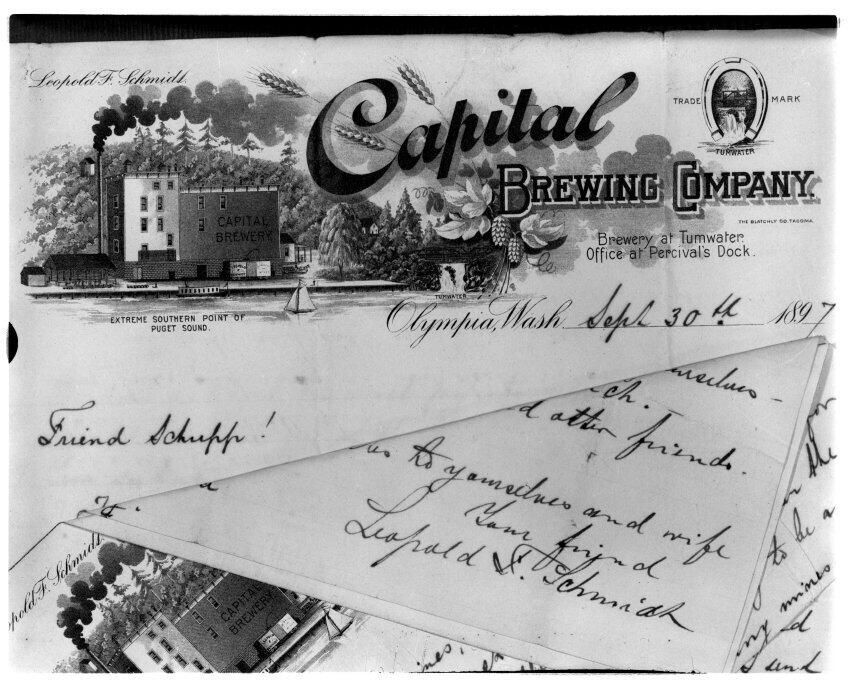 Leopold F. Schmidt.
Capital
BREWING COMPANY.
TRADE MARK
TUMWATER
THE BLATCHLY CO. TACOMA.
Brewery at Tumwater
Office at Percival's Dock.
CAPITAL
BREWERY
TUMWATER
EXTREME SOUTHERN POINT OF
PUGET SOUND.
Olympia, Wash. Sept 30th 1897
Friend Schupp!
urselves-
ch.
d other friends.
us to yourselves and wife
Your friend
Leopold F. Schmidt
for
the
to be a
mines
d
send
opold F. Schmidt.
CAPITAL
BREWERY